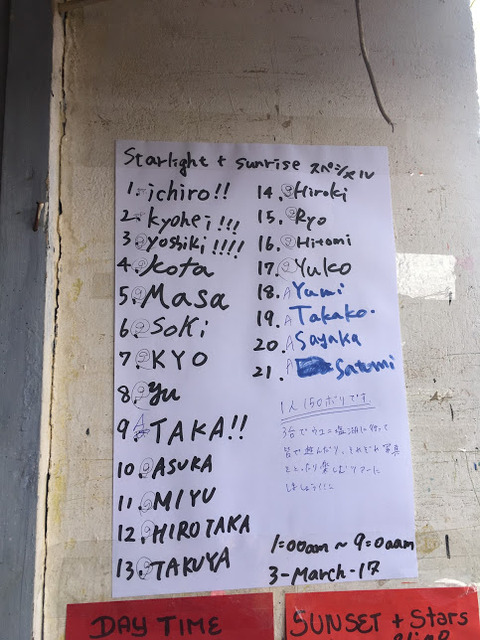 Starlight + sunrise スペシャル
1. ichiro!!
2. kyohei!!!
3. yoshiki!!!!
4. Kota
5. Masa
6. SoKi
7. KYO
8. Yu
9. A TAKA!!
10. ASUKA
11. MIYU
12. HIROTAKA
13. TAKUYA
14. Hiroki
15. Ryo
16. Hitomi
17. Yuko
18. A Yumi
19. A Takako.
20. A Sayaka
21. A Satomi
1人 150ボリです。
3台でウユニ塩湖に行って
皆で遊んだり、それぞれ写真
をとったり楽しむツアーに
しましょう!!
1:00am ~ 9:00am
3-March-17
DAY TIME
SUNSET + Stars